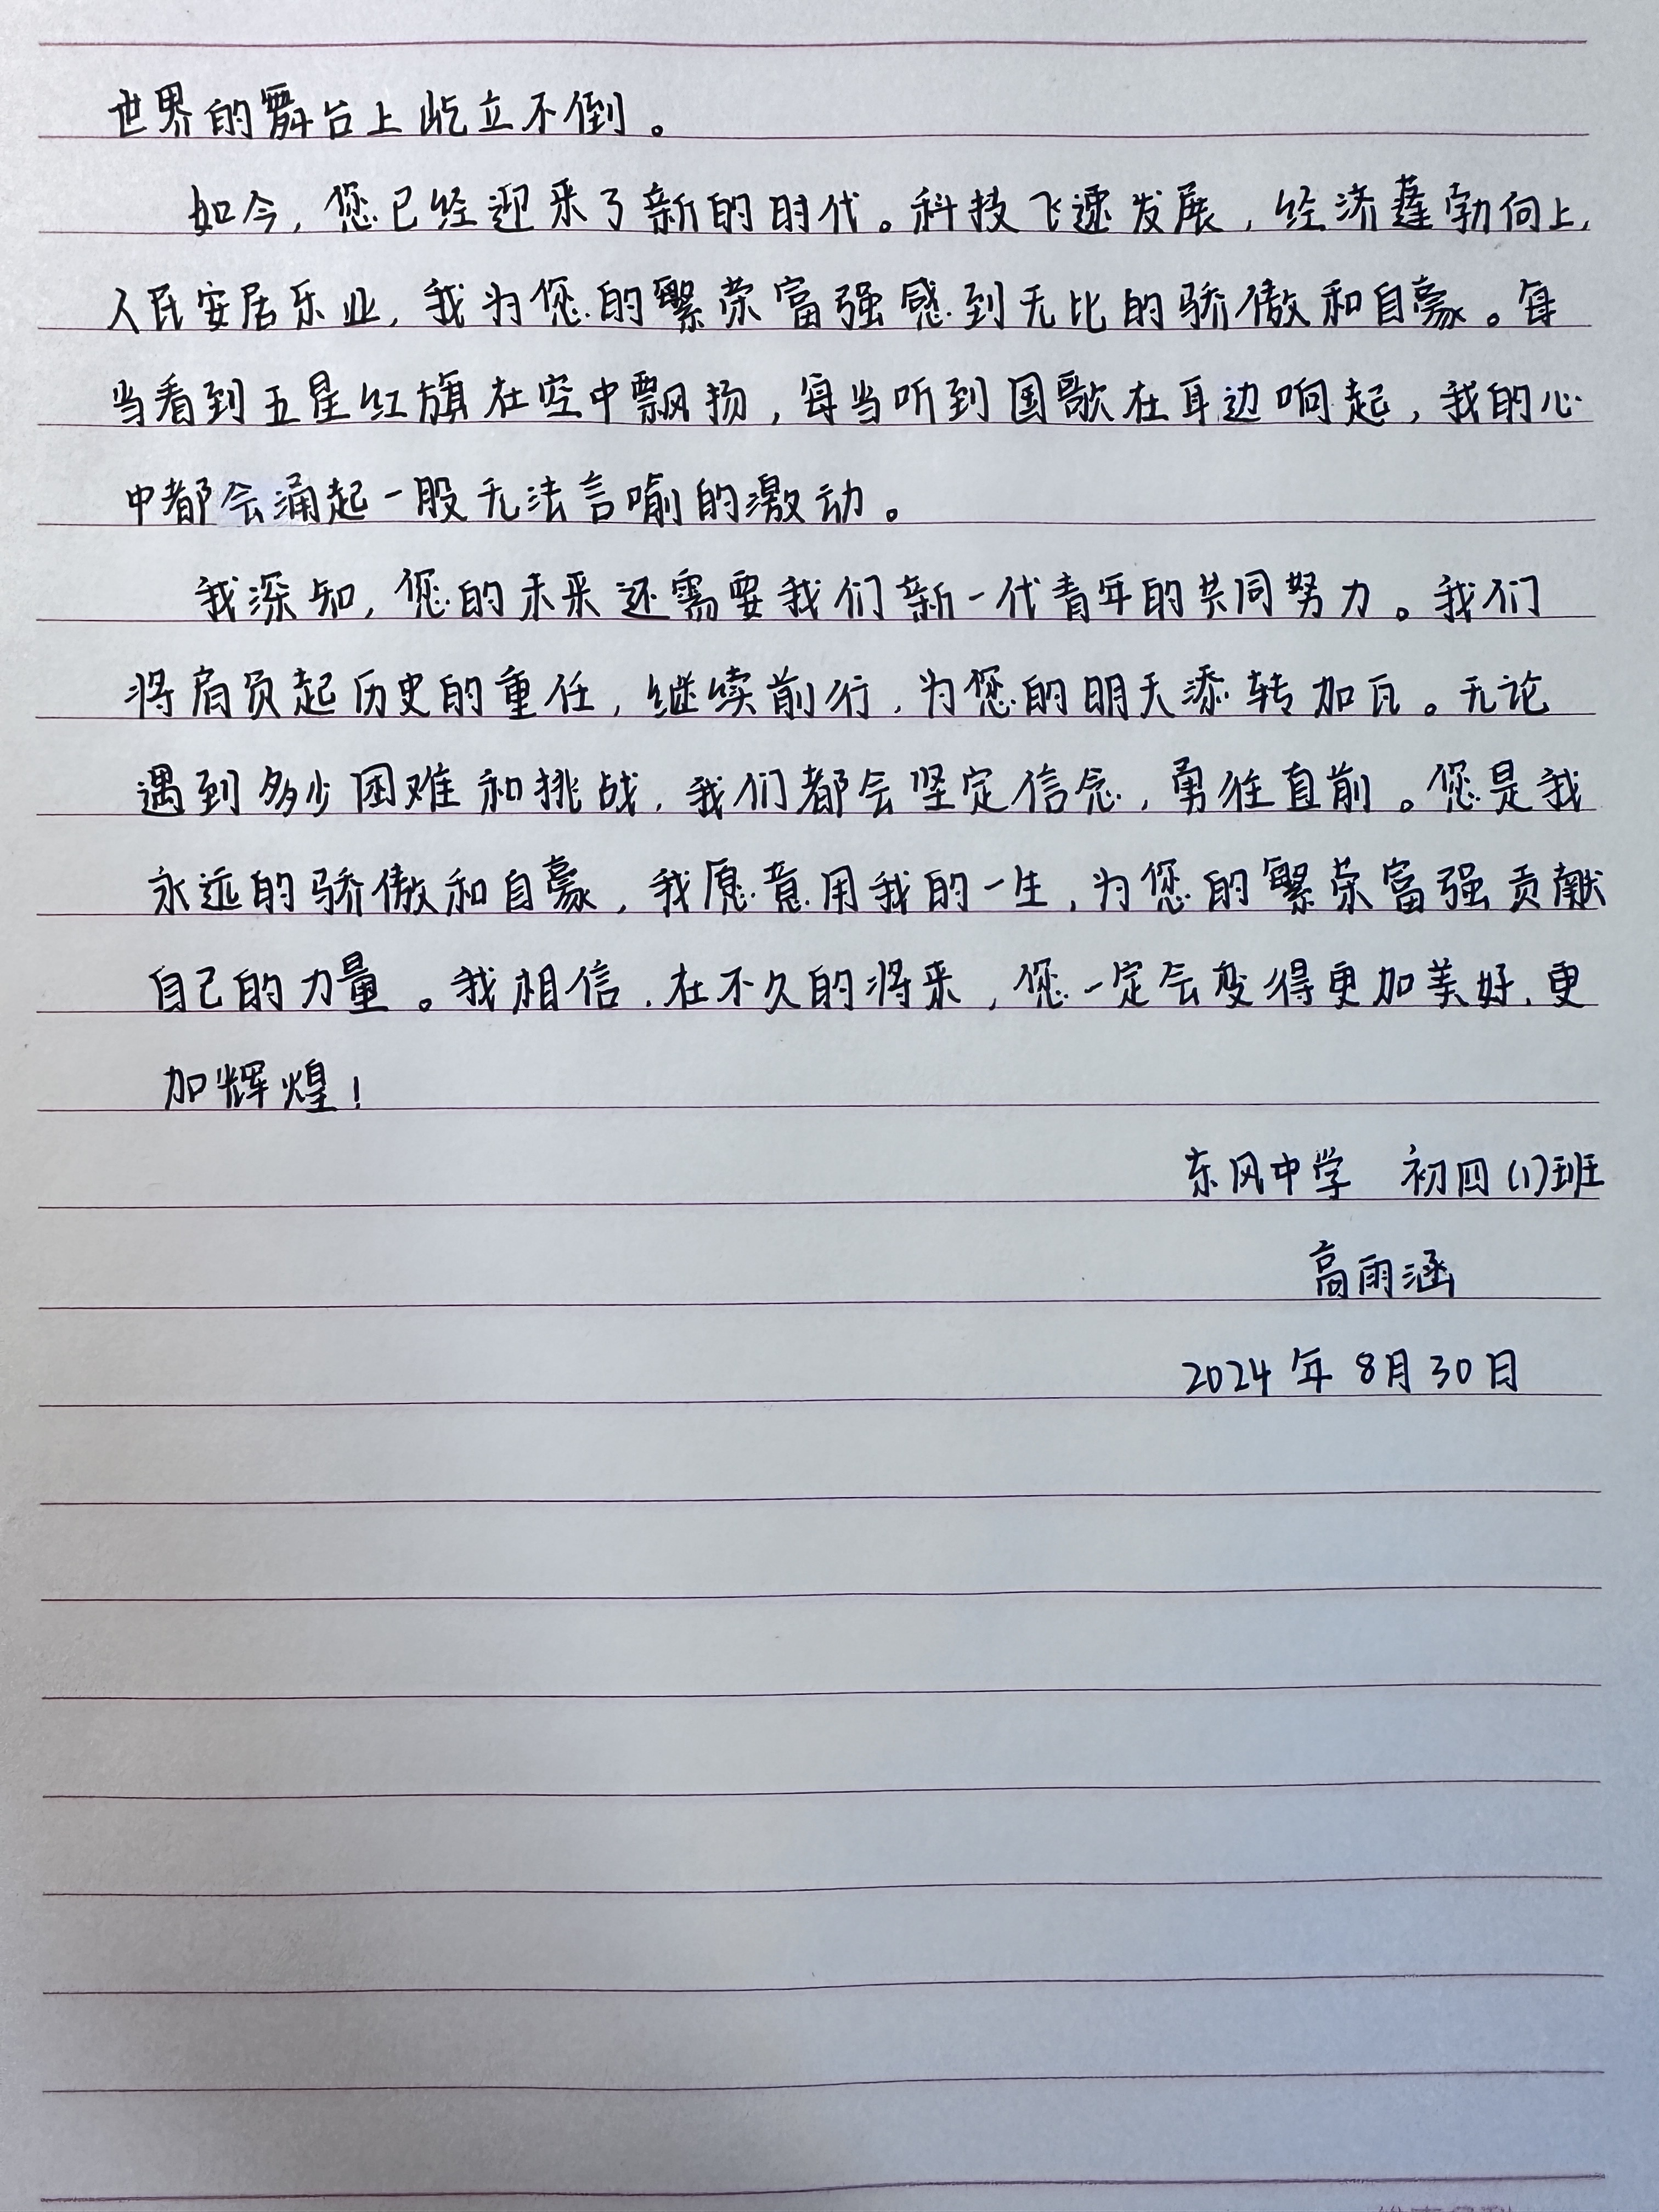 世界的舞台上屹立不倒。
如今，您已经迎来了新的时代。科技飞速发展，经济蓬勃向上，
人民安居乐业，我为您的繁荣富强感到无比的骄傲和自豪。每
当看到五星红旗在空中飘扬，每当听到国歌在耳边响起，我的心
中都会涌起一股无法言喻的激动。
我深知，您的未来还需要我们新一代青年的共同努力。我们
将肩负起历史的重任，继续前行，为您的明天添转加瓦。无论
遇到多少困难和挑战，我们都会坚定信念，勇往直前。您是我
永远的骄傲和自豪，我愿意用我的一生，为您的繁荣富强贡献
自己的力量。我相信，在不久的将来，您一定会变得更加美好，更
加辉煌！
东风中学 初四(1)班
高雨涵
2024年8月30日